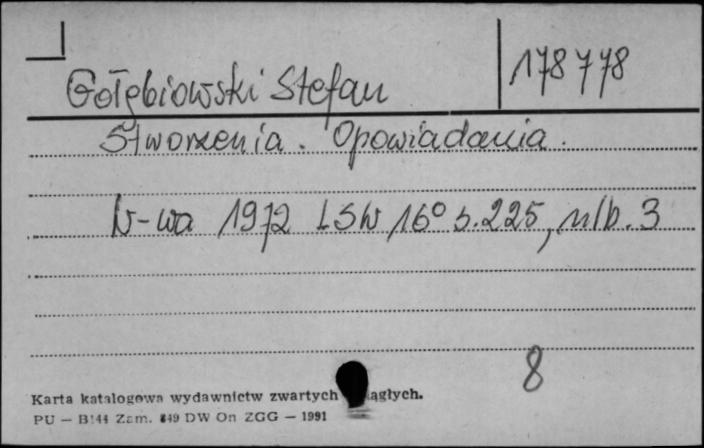 178778
Gołębiowski Stefan
Stworzenia. Opowiadania.
W-wa 1972 LSW 16° s. 225, nlb. 3
8
Karta katalogowa wydawnictw zwartych
PU — B144 Zam. 849 DW On ZGG — 1991